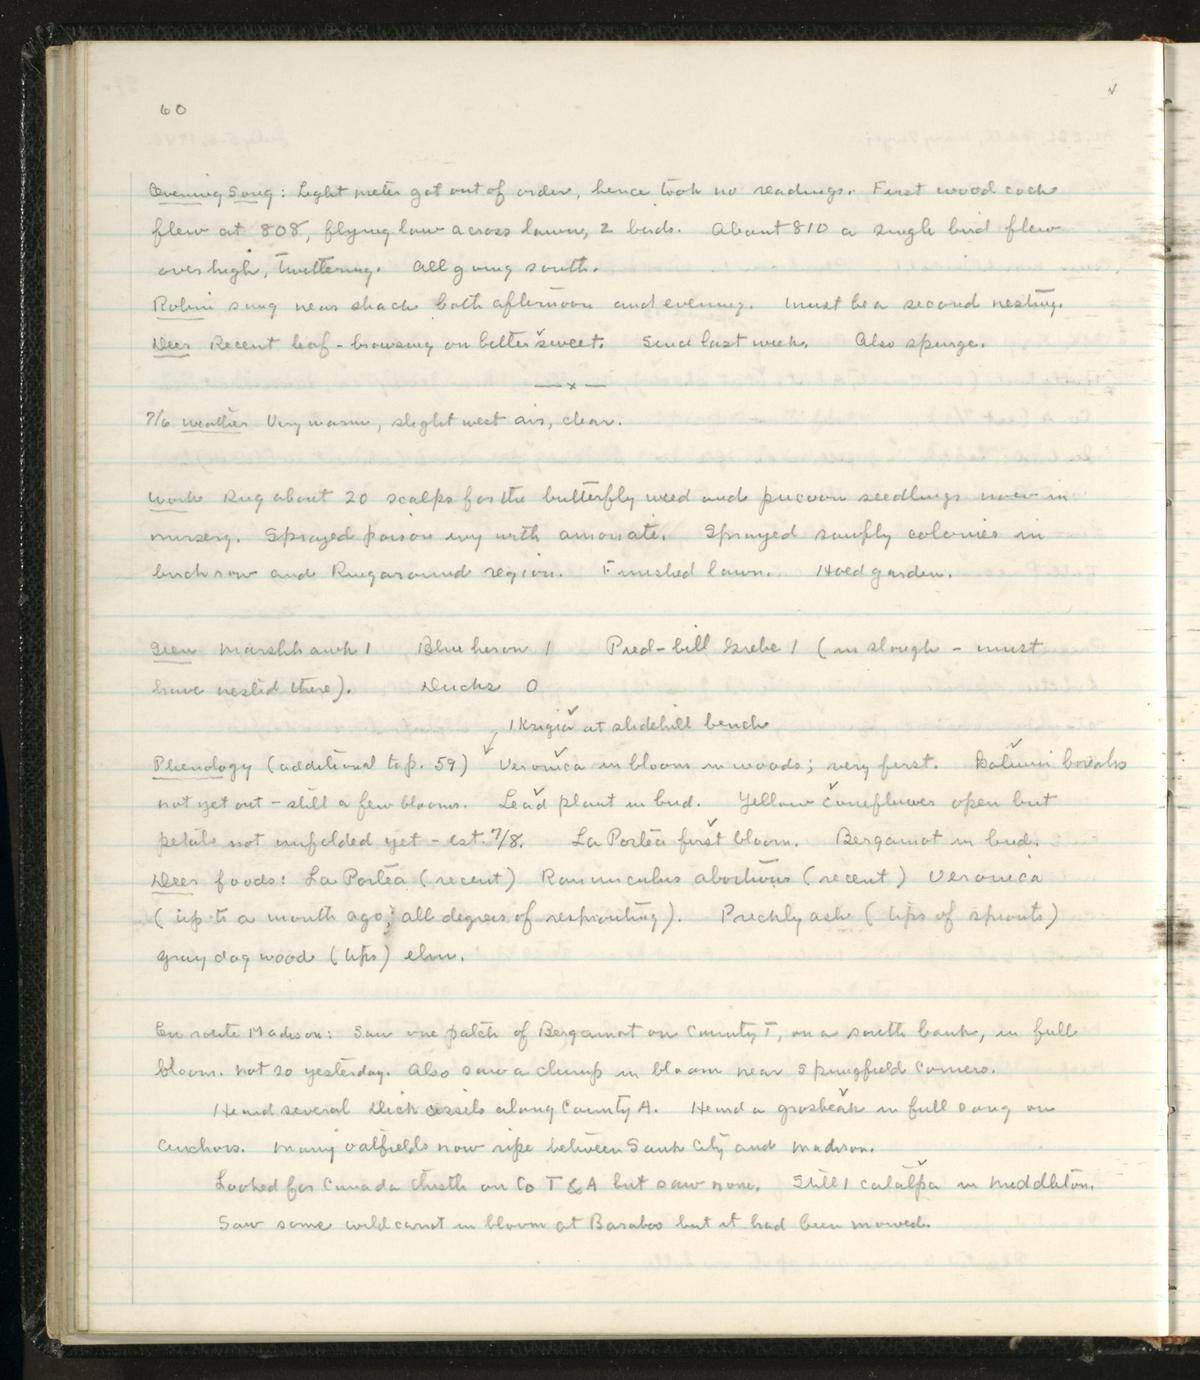 60
Evening Song: Light meter got out of order, hence took no readings. First woodcock
flew at 808, flying low across lawn, 2 birds. About 810 a single bird flew
over high, twittering. All going south.
Robin sung near shack both afternoon and evening. Must be a second nesting.
Deer Recent leaf-browsing on bittersweet. Since last week. Also spurge.
—x—
7/6 Weather Very warm, slight west air, clear.
Work Dug about 20 scalps for the butterfly weed and puccoon seedlings now in
nursery. Sprayed poison ivy with amonate. Sprayed sawfly colonies in
birch row and Ringaround region. Finished lawn. Hoed garden.
Seen Marsh hawk 1 Blue heron 1 Pied-bill Grebe 1 (in slough - must
have nested there). Ducks 0
1 Krigia at slidehill bench
Phenology (additional to p. 59) Veronica in bloom in woods; very first. Galium boreale
not yet out - still a few blooms. Lead plant in bud. Yellow Coneflower open but
petals not unfolded yet - est. 7/8. La Portea first bloom. Bergamot in bud.
Deer foods: La Portea (recent) Ranunculus abortivus (recent) Veronica
(up to a month ago; all degrees of resprouting). Prickly ash (tips of sprouts)
Gray dogwood (tips) elm.
En route Madison: Saw one patch of Bergamot on County T, on a south bank, in full
bloom. Not so yesterday. Also saw a clump in bloom near Springfield Corners.
Heard several Dickcissels along County A. Heard a grosbeak in full song on
Anchors. Many oatfields now ripe between Sauk City and Madison.
Looked for Canada thistle on to T & A but saw none. Still 1 catalpa in Middleton.
Saw some wild carrot in bloom at Baraboo but it had been mowed.